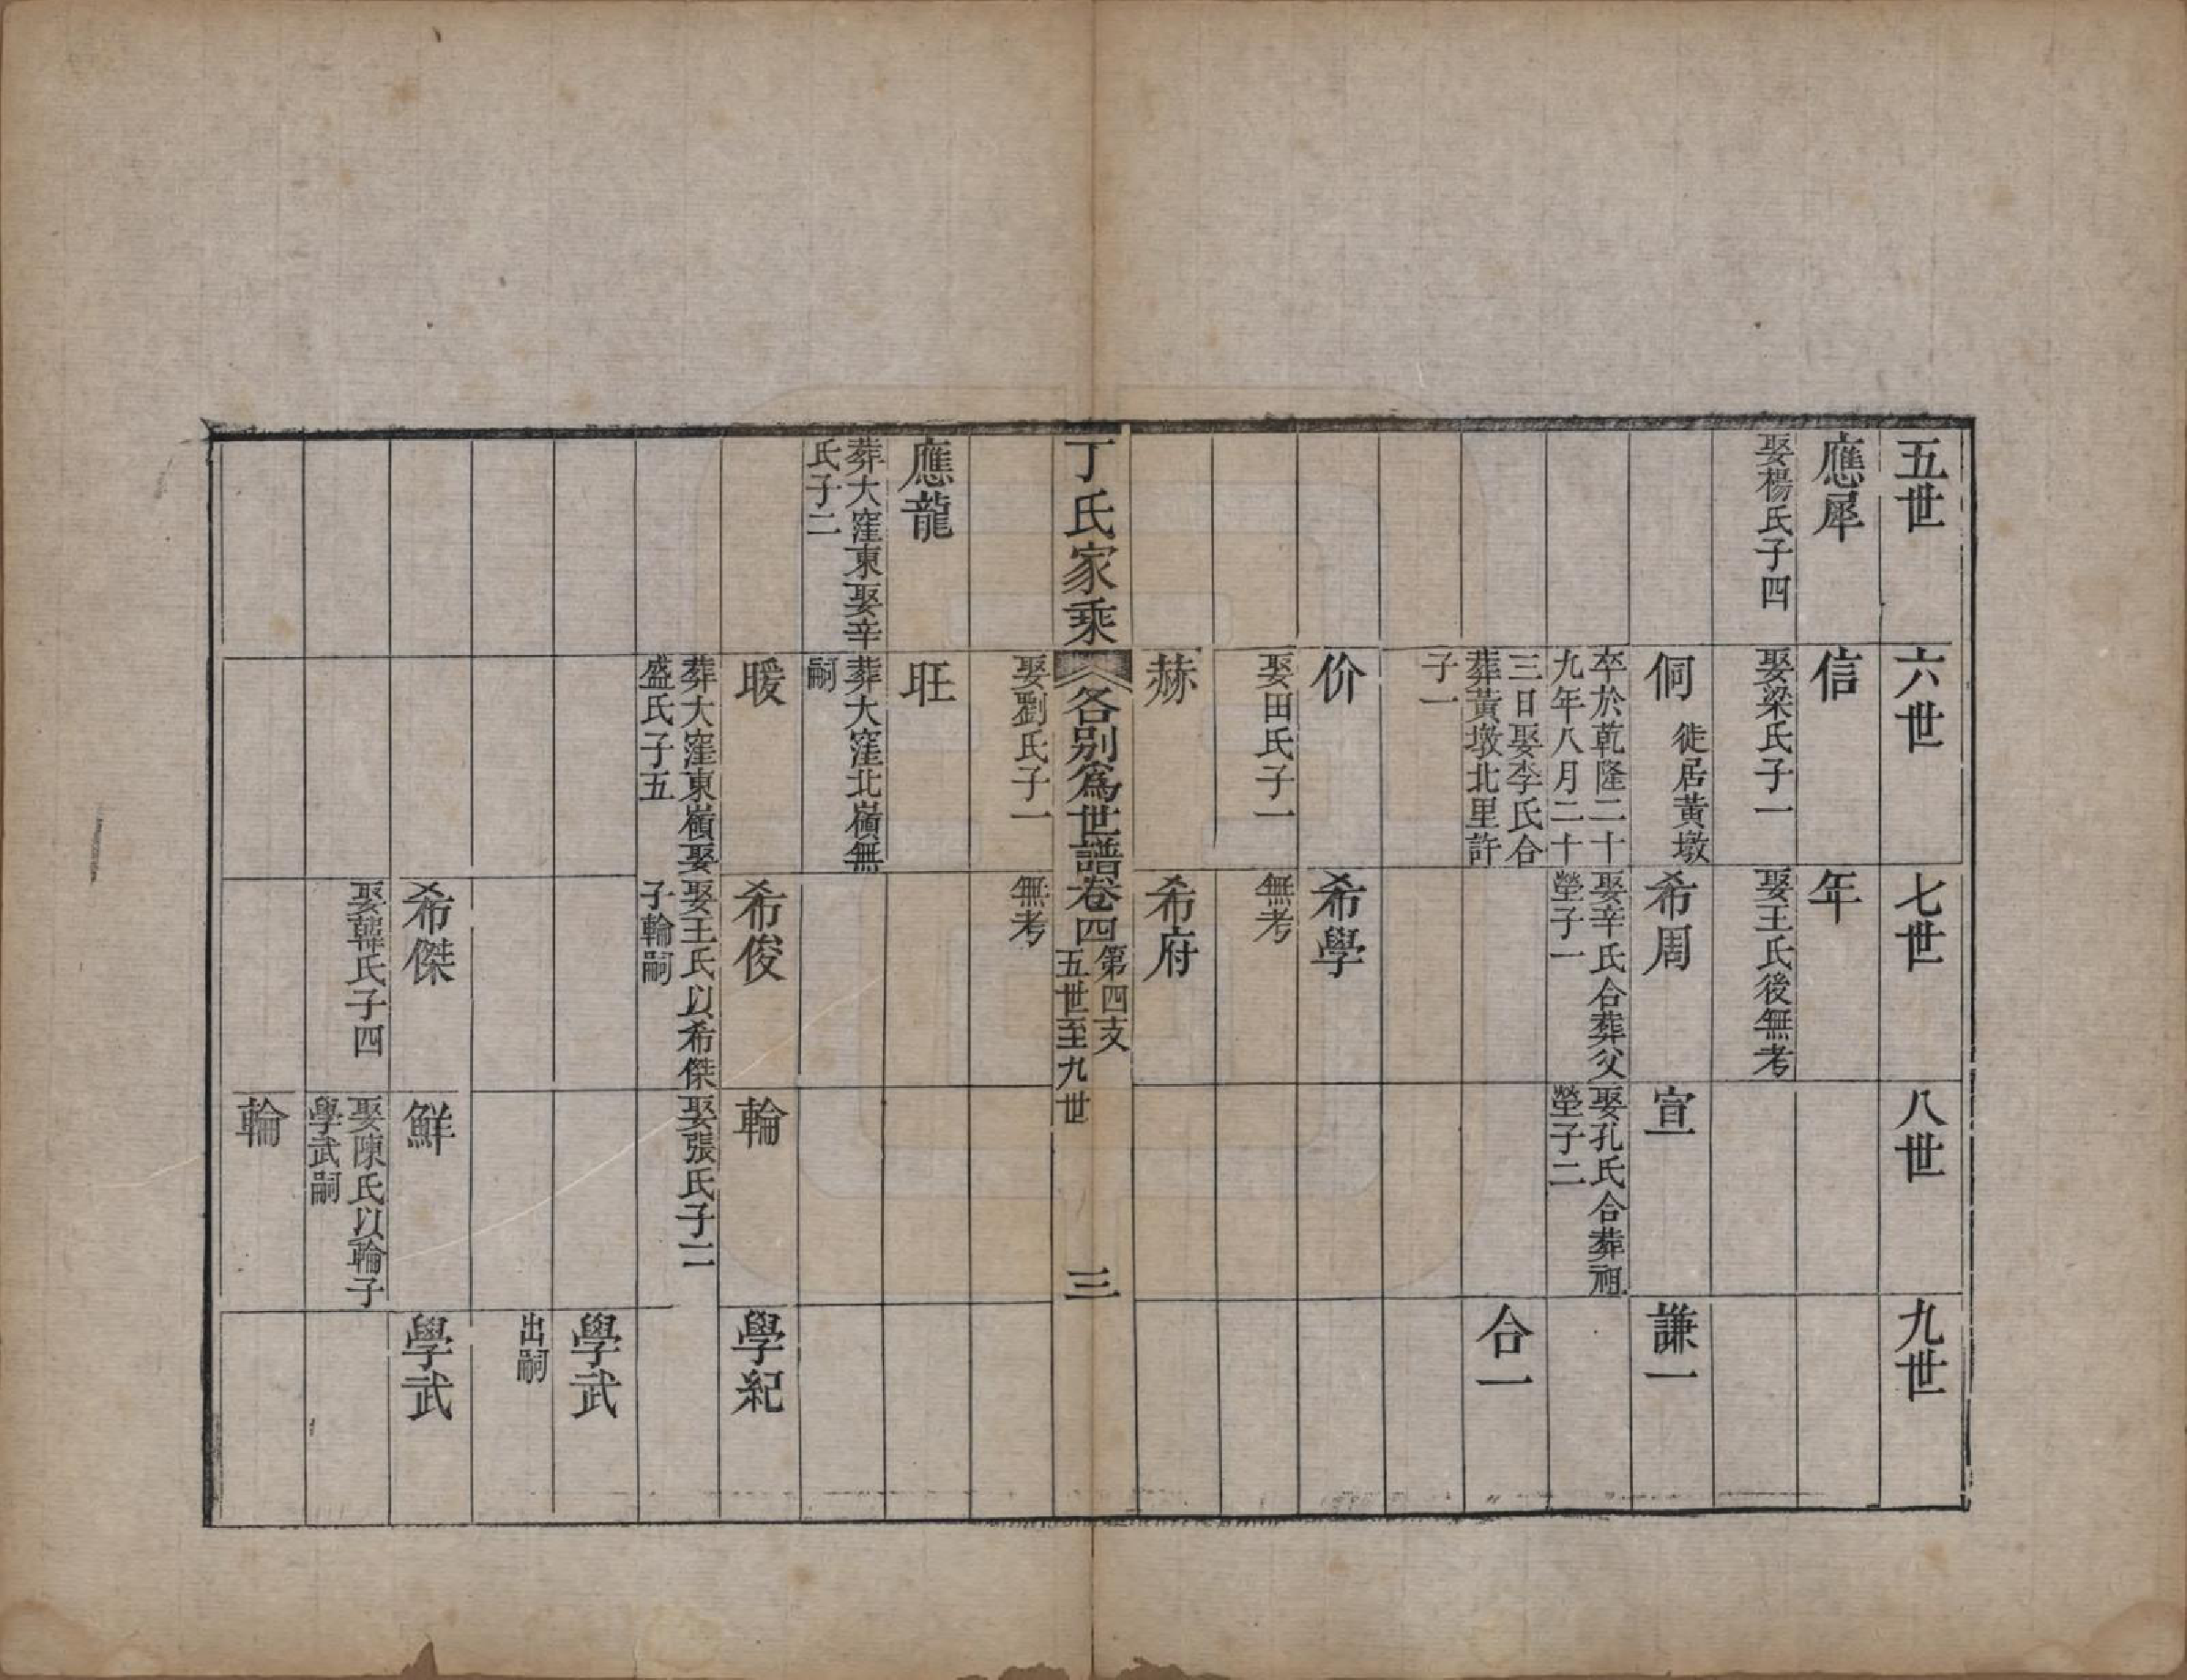 五世
六世
七世
八世
九世
應犀
娶楊氏子四
信
娶梁氏子一
年
娶王氏後無考
侗
徙居黃墩
卒於乾隆二十
九年八月二十
三日娶李氏合
葬黃墩北里許
子一
希周
娶辛氏合葬父
塋子一
宣
娶孔氏合葬祖
塋子二
謙一
合一
价
娶田氏子一
希學
無考
赫
娶劉氏子一
希府
無考
丁氏家乘
各別爲世譜卷四
第四支
五世至九世
三
應龍
葬大窪東娶辛
氏子二
旺
葬大窪北嶺無
嗣
暖
葬大窪東嶺娶
盛氏子五
希俊
娶王氏以希傑
子輪嗣
輪
娶張氏子二
學紀
學武
出嗣
希傑
娶韓氏子四
鮮
娶陳氏以輪子
學武嗣
學武
輪